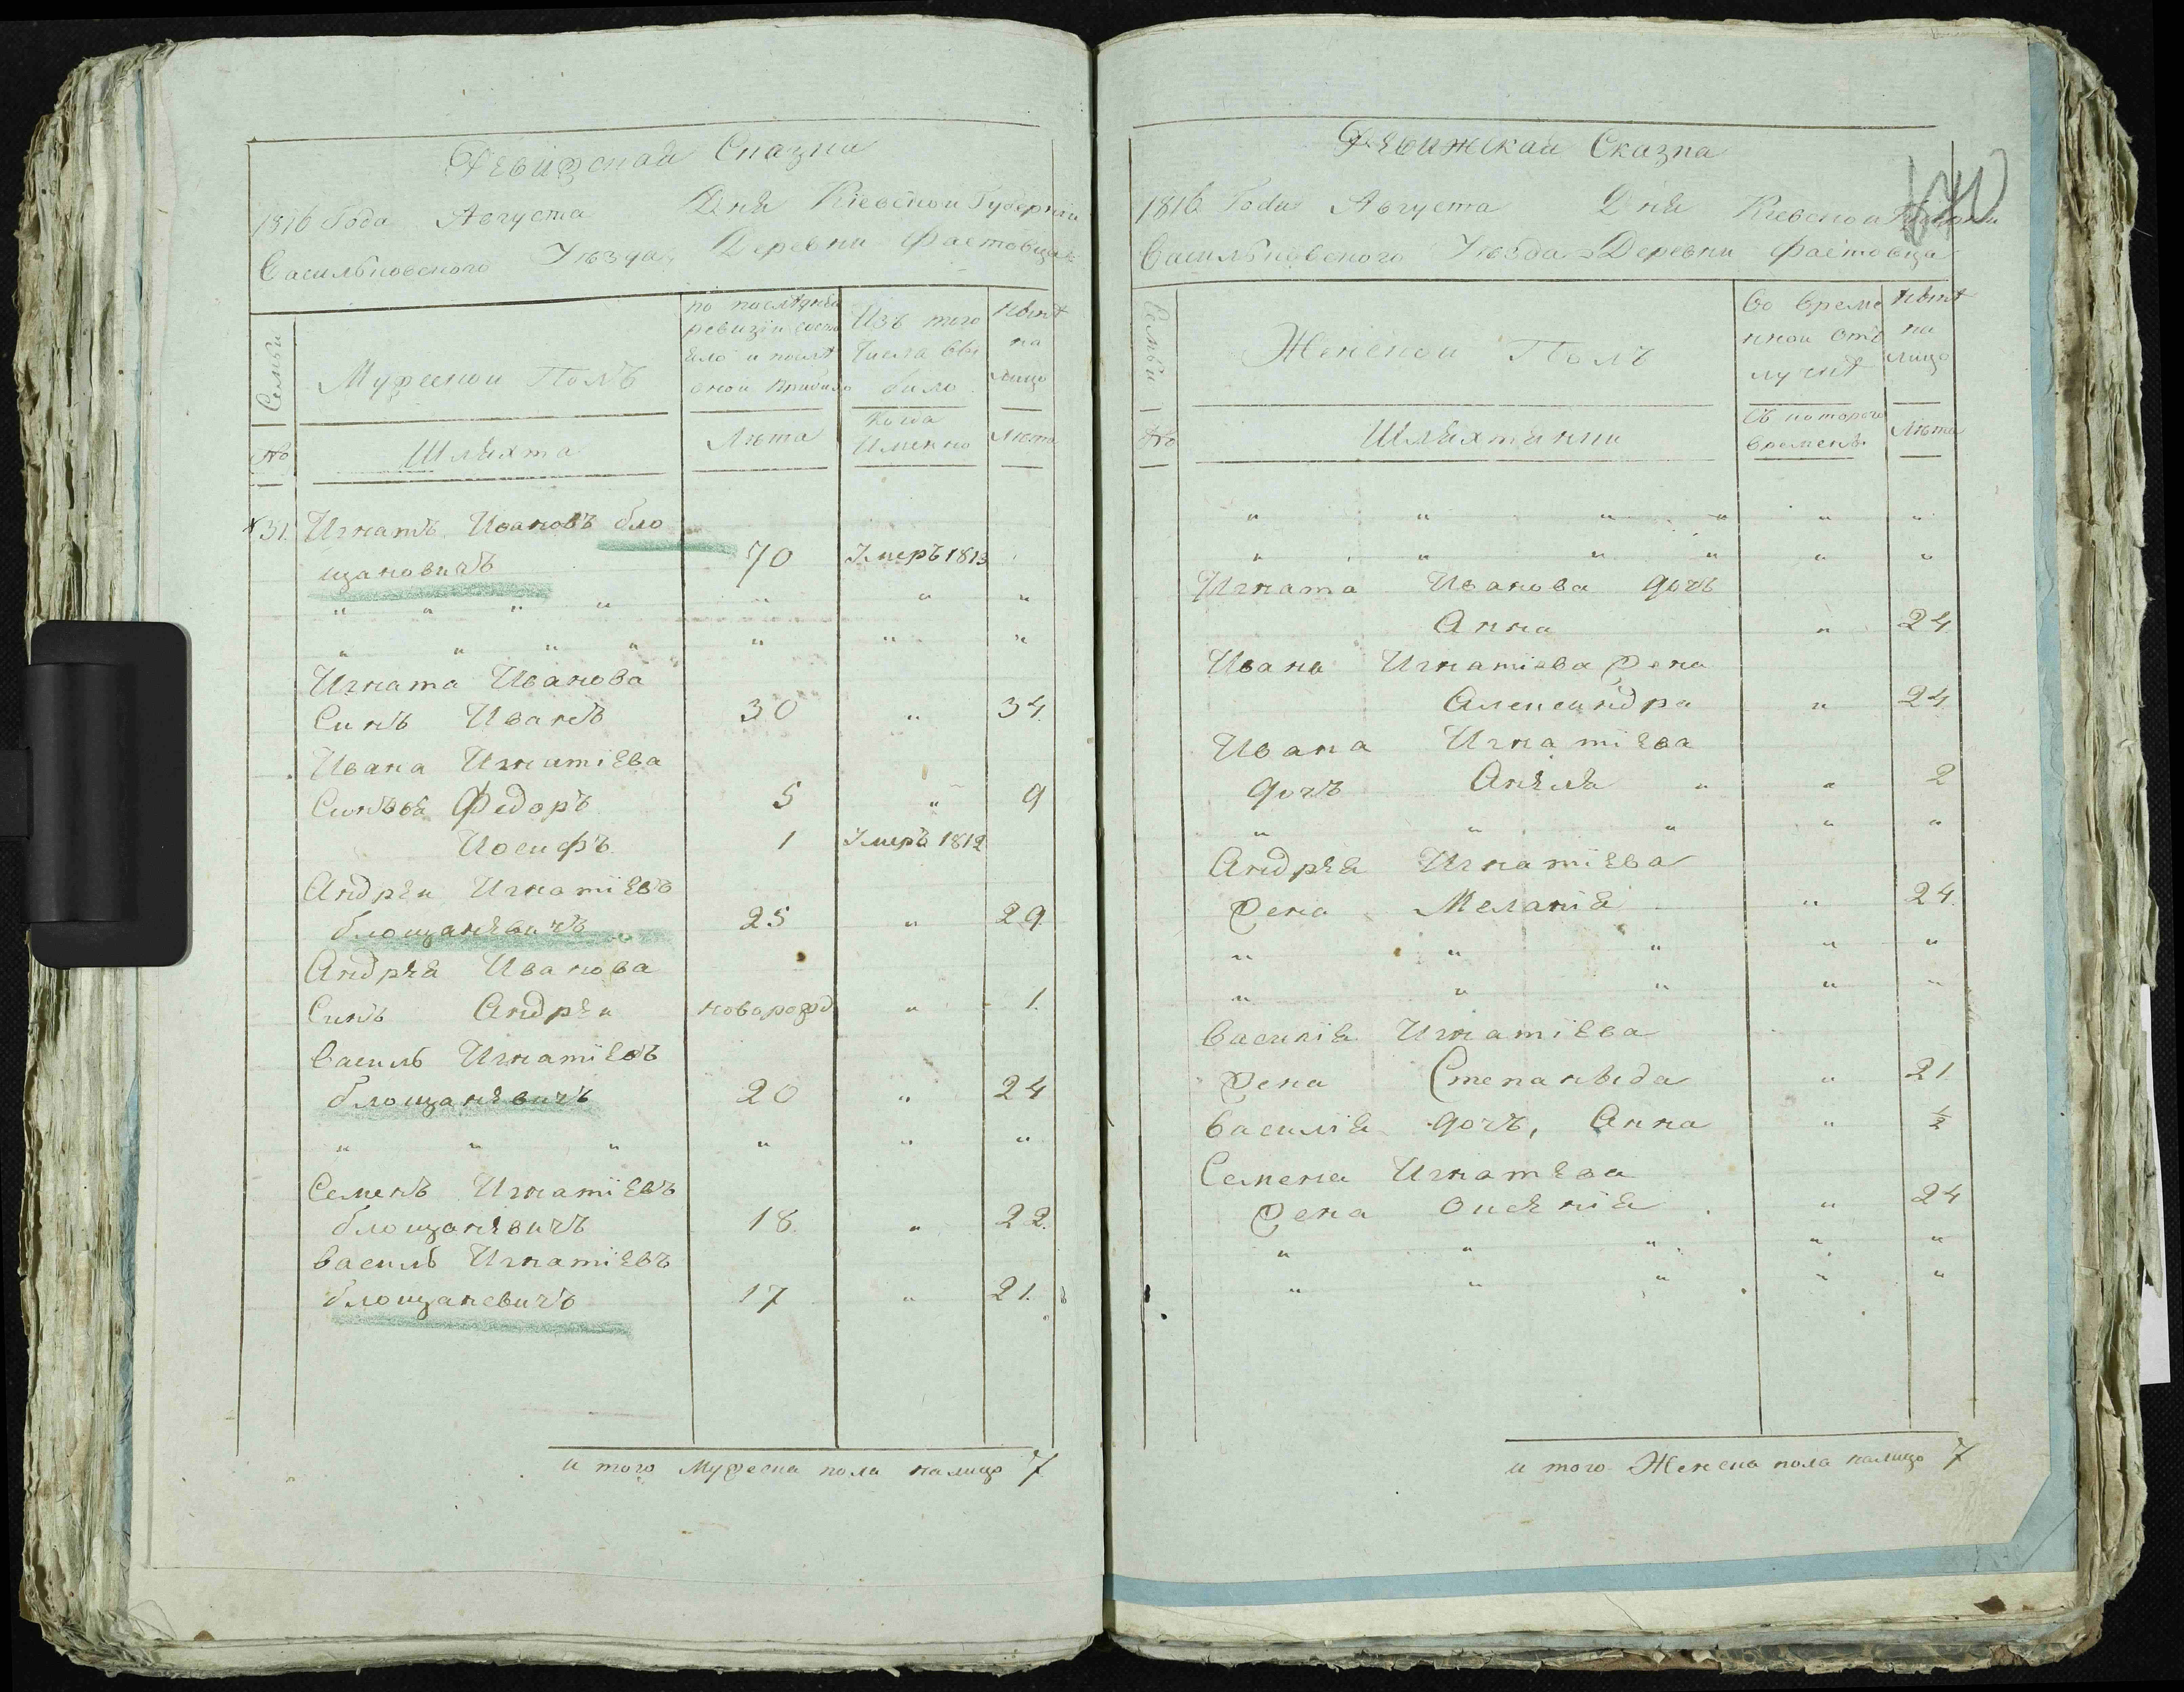 Ревижская Сказка
1816 Года Августа Дня Кіевской Губерніи
Васильковского Уезда Деревни Фастовца
Семьи
Мужеской Полъ
по последнѣй
ревизіи состо
яло и послѣ
оной прибыло
Изъ того
Числа вы
было
нынѣ
на
лицо
№
Шляхта
Лета
Когда
Имянно
Лета
31. Игнатъ Ивановъ бло
щановичъ 70 Умеръ 1813
" " " " " " "
" " " " " " "
Игната Иванова
Синъ Иванъ 30 " 34.
Ивана Игнатіева
Синъвя Федоръ 5 " 9
Иосифъ 1 Умеръ 1812
Андрей Игнатіевъ
блощаневичъ 25 " 29.
Андрея Иванова
Синъ Андрей коворожд " 1.
Василь Игнатіевъ
блощаневичъ 20 " 24
" " " " " "
Семенъ Игнатіевъ
блощаневичъ 18. " 22.
Василь Игнатіевъ
блощаневичъ 17 " 21.
и того Мужеска пола налицо 7
Ревижская Сказка
1816 Года Августа Дня Кіевской
Васильковского Уезда Деревни Фастовца
Семьи
Женской Полъ
Во време
нной отъ
лучкѣ
нынѣ
на
лицо
№
Шляхтянки
Съ которого
времень
Лета
" " " " " "
" " " " " "
Игната Иванова дочъ
Анна " 24.
Ивана Игнатіева жена
Александра " 24.
Ивана Игнатіева
дочъ Анеля " " 2
" " " " "
Андрея Игнатіева
жена Меланія " 24.
" " " " "
" " " " "
Василія Игнатіева
жена Степаныда " 21.
Василія дочъ, Анна " ½
Семена Игнатева
жена Оксенія " 24
" " " " "
" " " " "
и того Женска пола налицо 7